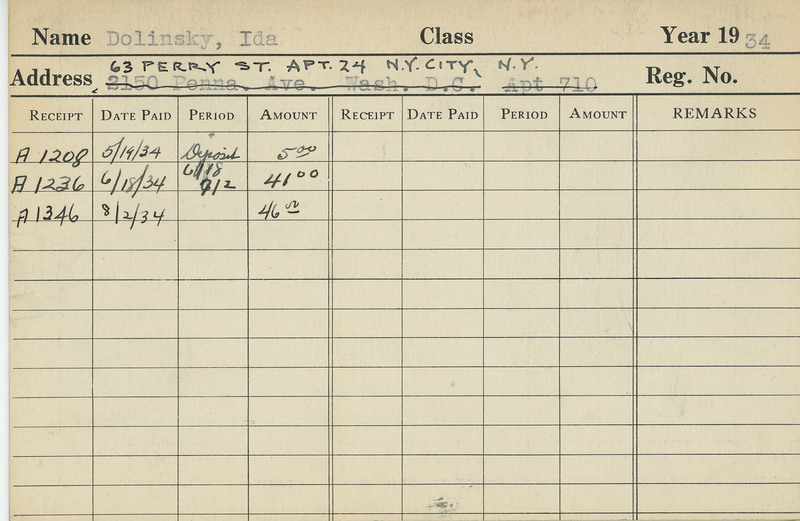 Name Dolinsky, Ida Class Year 1934
63 PERRY ST. APT. 24 N.Y. CITY, N.Y.
Address 2150 Penna. Ave. Wash. D.C. Apt 710 Reg. No.
RECEIPT DATE PAID PERIOD AMOUNT RECEIPT DATE PAID PERIOD AMOUNT REMARKS
A 1208 5/19/34 Deposit 5 00
A 1236 6/18/34 6/18 7/2 41 00
A 1346 8/2/34 46